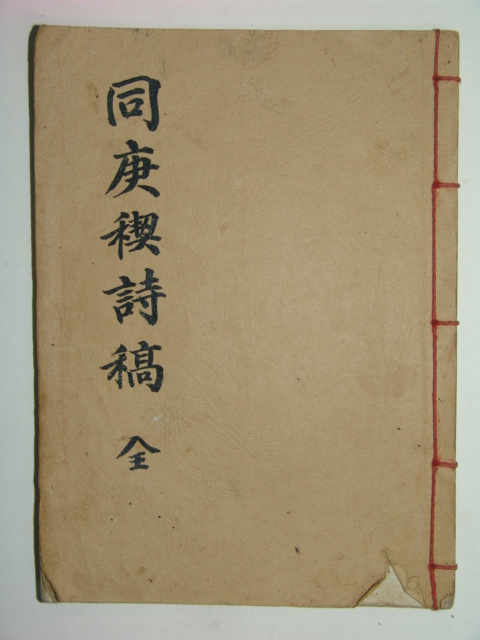 同庚稧詩稿 全